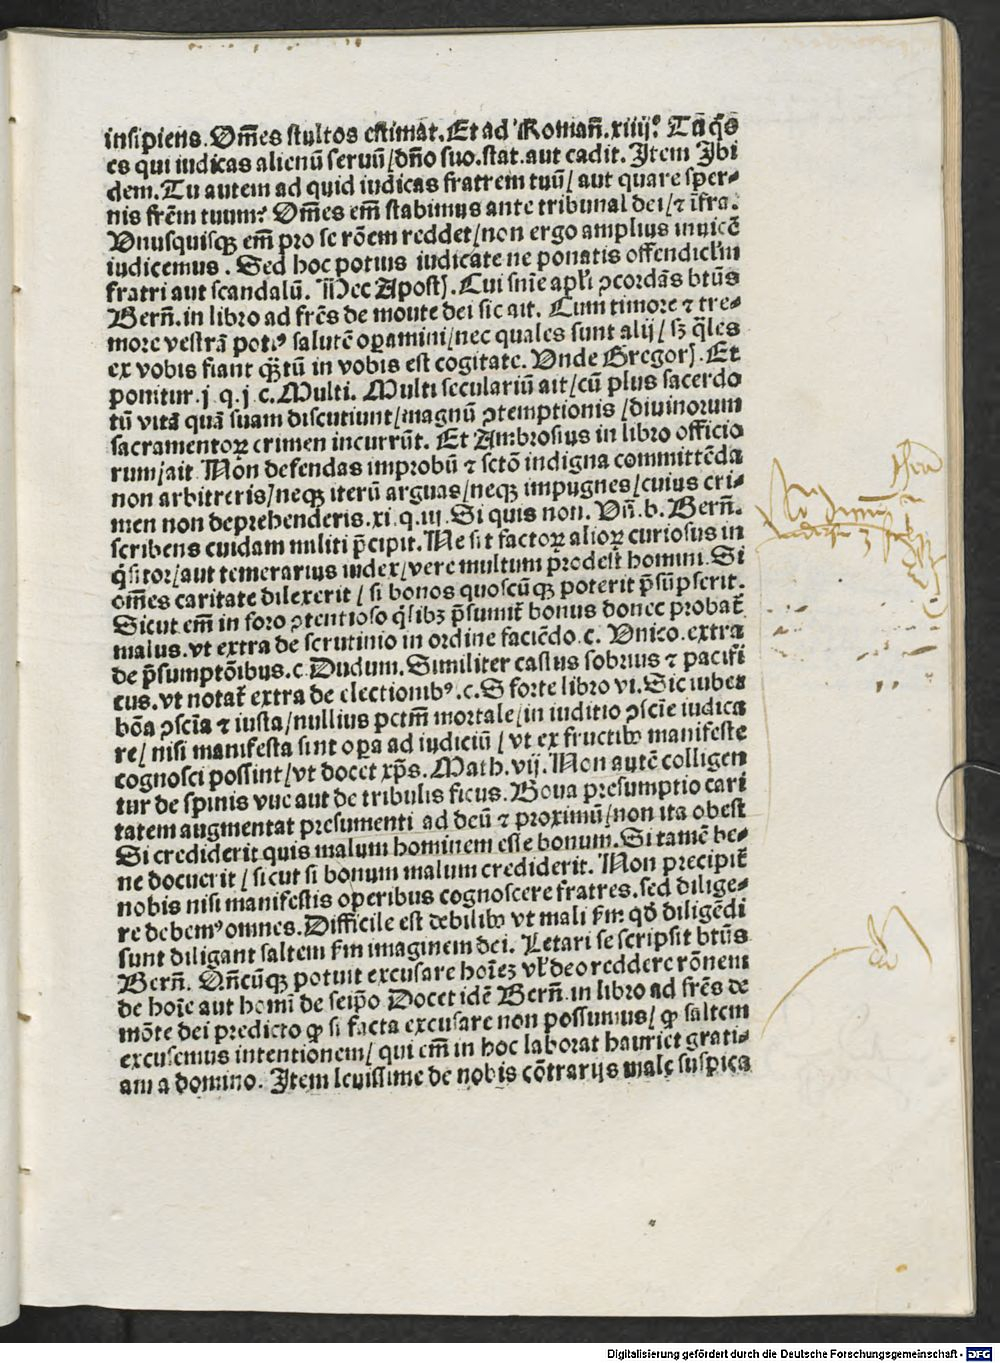 insipiens. Om̄es stultos estimat. Et ad Roman̄. xiiij.º Tu q̄s
es qui iudicas alienū seruū / dn̄o suo. stat. aut cadit. Item Ibi
dem. Tu autem ad quid iudicas fratrem tuū / aut quare sper-
nis frēm tuum? Om̄es em̄ stabimus ante tribunal dei / ⁊ īfra.
Vnusquisqꝫ em̄ pro se rōem reddet / non ergo amplius inuicē
iudicemus. Sed hoc potius iudicate ne ponatis offendicl̄m
fratri aut scandalū. Hec Apostꝭ. Cui sn̄ie apl̄i ↄcordās btūs
Bern̄. in libro ad frēs de monte dei sic ait. Cum timore ⁊ tre-
more vestrā potiꝰ salutē oꝑamini / nec quales sunt alij / sꝫ q̄les
ex vobis fiant qꝫtū in vobis est cogitate. Vnde Gregorꝭ. Et
ponitur. j. q. j. c. Multi. Multi seculariū ait / cū plus sacerdo
tū vitā quā suam discutiunt / magnū ↄtemptionis / diuinorum
sacramentoꝝ crimen incurrūt. Et Ambrosius in libro officio
rum / ait. Non defendas improbū ⁊ sctō indigna committēda
non arbitreris / neqꝫ iterū arguas / neqꝫ impugnes / cuius cri-
men non deprehenderis. xi. q. iij. Si quis non. Vn̄. b. Bern̄.
scribens cuidam militi p̄cipit. Ne sit factoꝝ alioꝝ curiosus in
q̄sitor / aut temerarius iudex / vere multum prodest homini. Si
om̄es caritate dilexerit / si bonos quoscūqꝫ poterit p̄sūpserit.
Sicut em̄ in foro ↄtentioso q̄libꝫ p̄sumit̄ bonus donec probat̄
malus. vt extra de scrutinio in ordine faciēdo. c. Vnico. extra
de p̄sumptōibus. c. Dudum. Similiter castus sobrius ⁊ pacifi
cus. vt notat̄ extra de electionibꝰ. c. S forte libro vi. Sic iubet
bōa ↄscīa ⁊ iusta / nullius pctm̄ mortale / in iuditio ↄscīe iudica
re / nisi manifesta sint oꝑa ad iudiciū / vt ex fructibꝰ manifeste
cognosci possint / vt docet xp̄s. Math. vij. Non autē colligen
tur de spinis vue aut de tribulis ficus. Bona presumptio cari
tatem augmentat presumenti ad deū ⁊ proximū / non ita obest
Si crediderit quis malum hominem esse bonum. Si tamē be-
ne docuerit / sicut si bonum malum crediderit. Non precipit̄
nobis nisi manifestis operibus cognoscere fratres. sed dilige-
re debemꝰ omnes. Difficile est debilibꝰ vt mali fm̄ qd̄ diligēdi
sunt diligant saltem fm̄ imaginem dei. Letari se scripsit btūs
Bern̄. Qn̄cūqꝫ potuit excusare hoīeꝫ vl̄ deo reddere rōnem
de hoīe aut homī de seip̄o Docet idē Bern̄. in libro ad frēs de
mōte dei predicto ꝙ si facta excusare non possumus / ꝙ saltem
excusemus intentionem / qui em̄ in hoc laborat hauriet grati-
am a domino. Item leuissime de nobis cōtrarijs male suspica
Digitalisierung gefördert durch die Deutsche Forschungsgemeinschaft - DFG